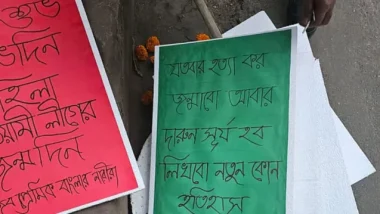 শুভ
দিন
মহিলা
লীগের
জন্মদিন
প্রেমিক বাংলার নারীরা
যতবার হত্যা কর
জন্মাবো আবার
দারুন সূর্য হব
লিখবো নতুন কোন
ইতিহাস